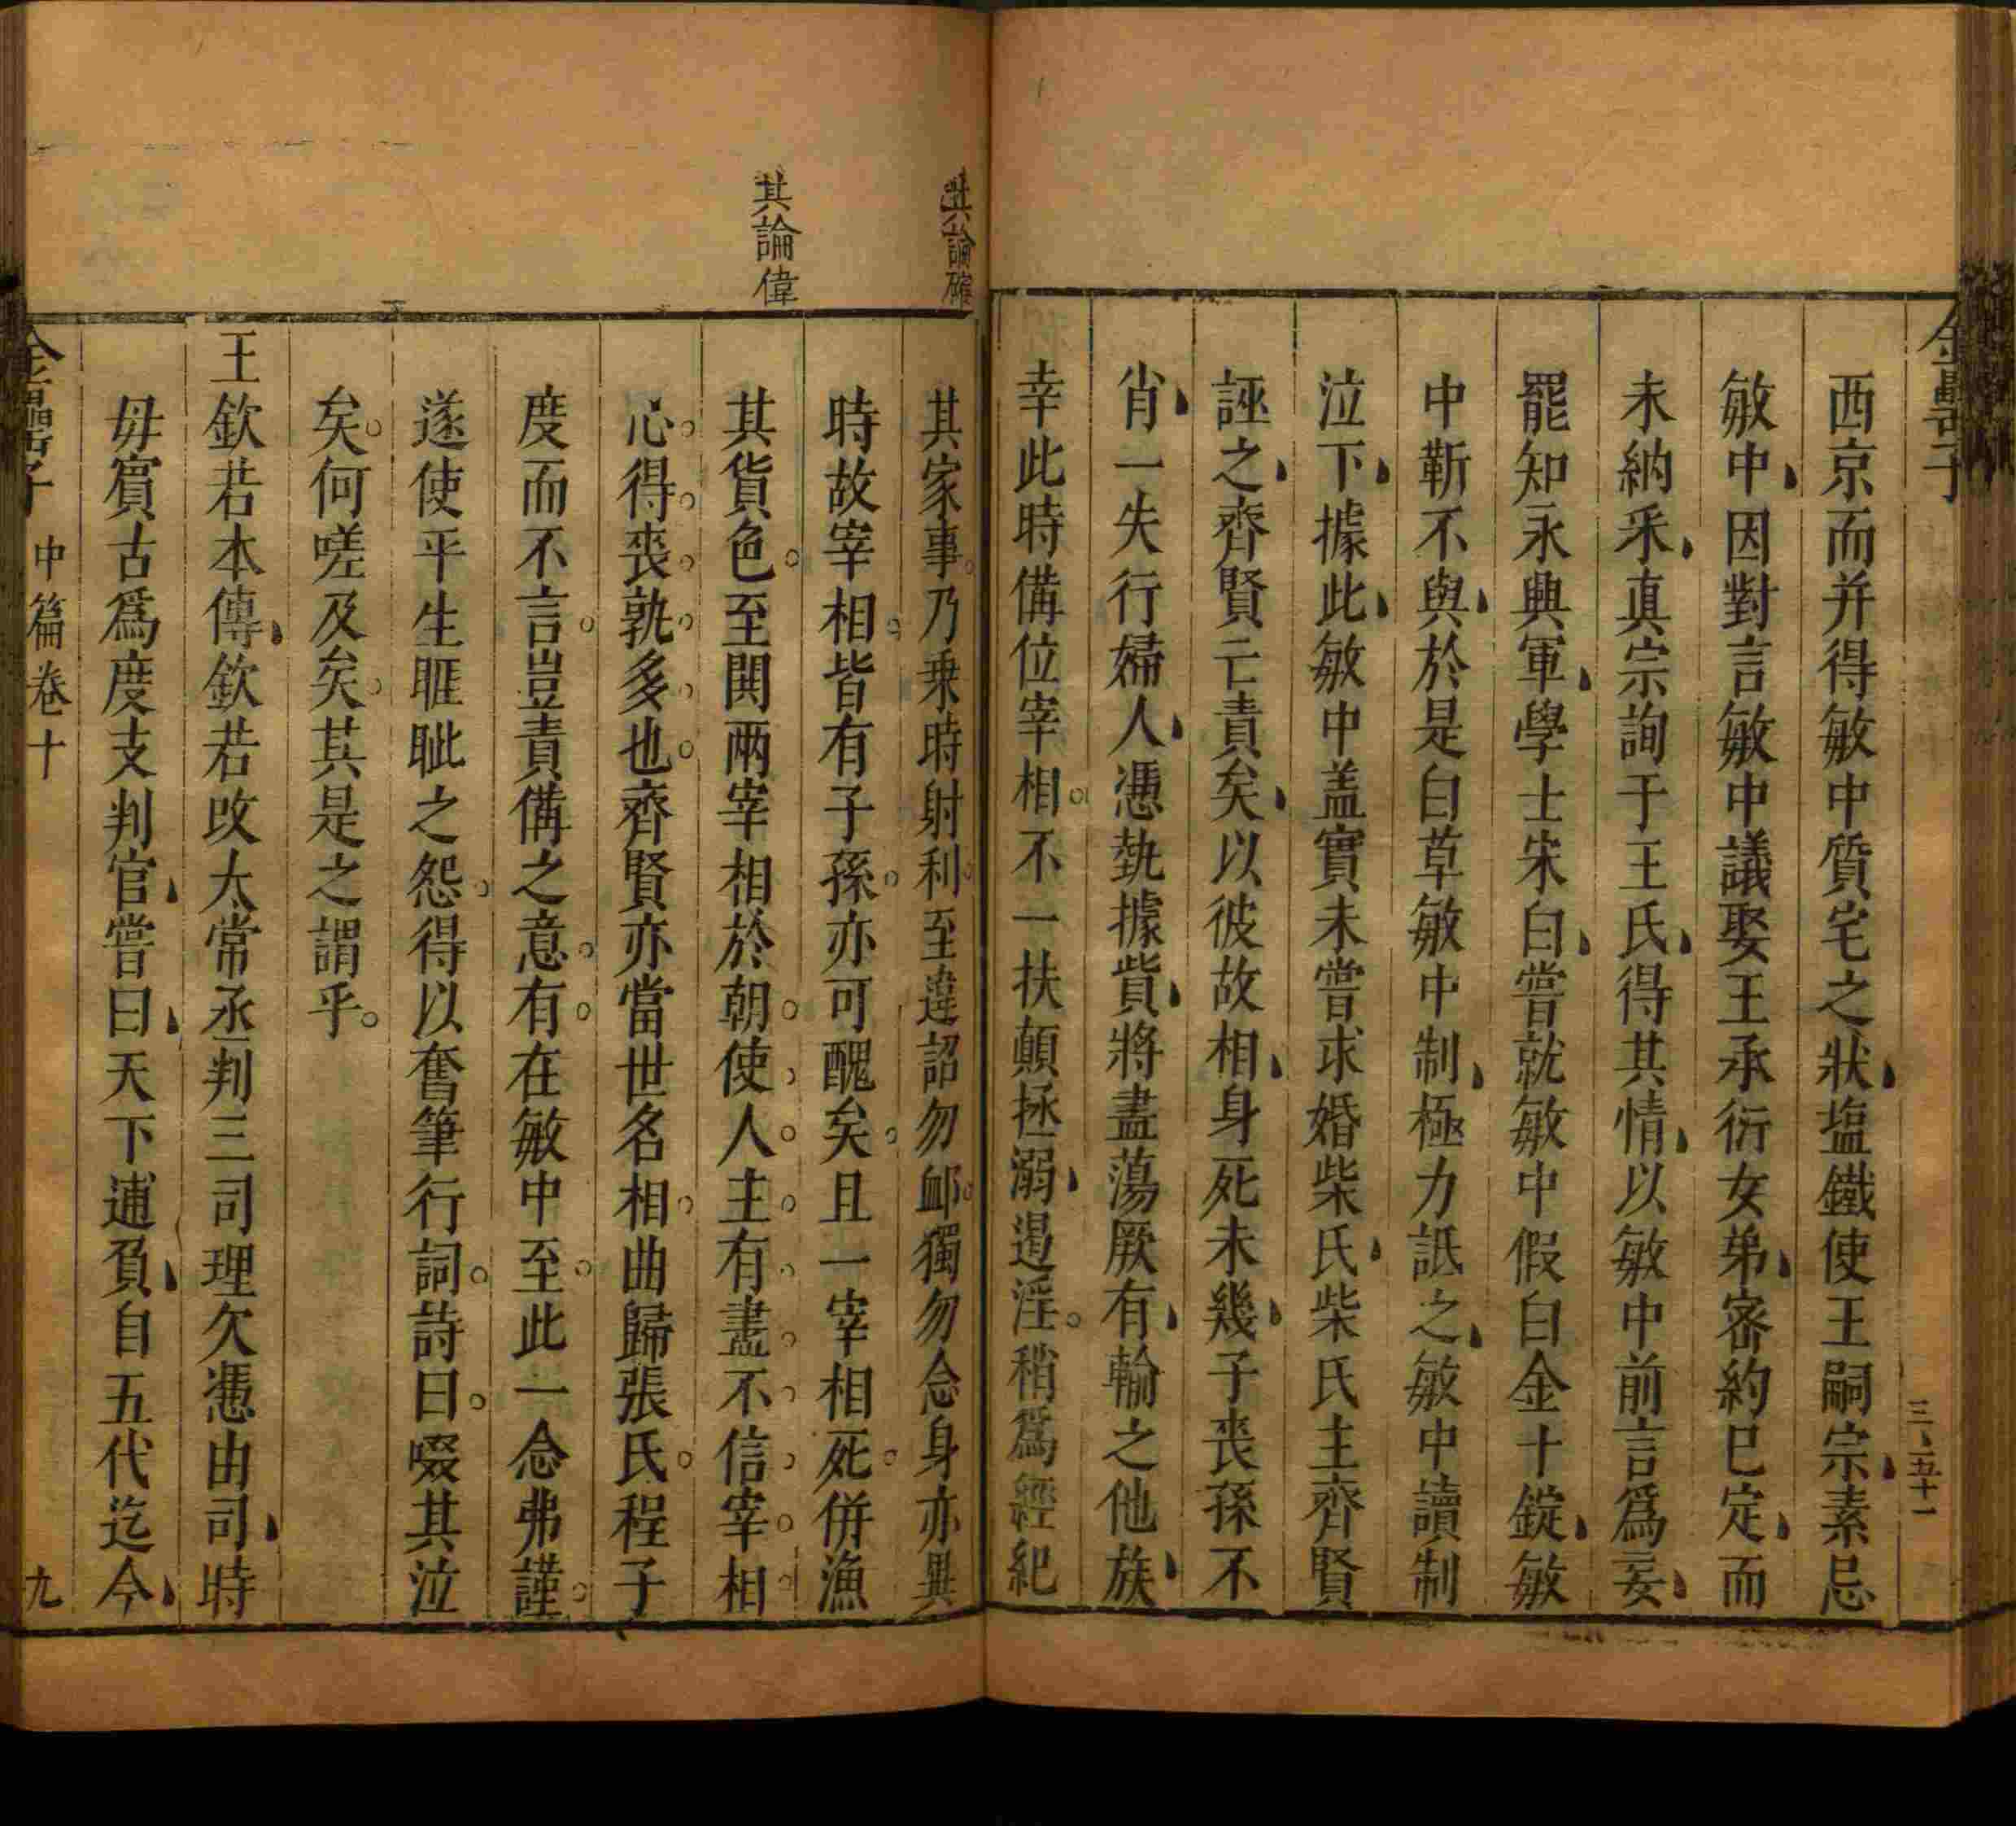 西京而并得敏中質宅之狀塩鐵使王嗣宗素忌
敏中因對言敏中議娶王承衍女弟密約已定而
未納采真宗詢于王氏得其情以敏中前言爲妄
罷知永興軍學士宋白嘗就敏中假白金十錠敏
中靳不與於是白草敏中制極力詆之敏中讀制
泣下據此敏中盖實未嘗求婚柴氏柴氏主齊賢
誣之齊賢亡責矣以彼故相身死未幾子丧孫不
肖一失行婦人憑埶據貲將盡蕩厥有輸之他族
幸此時備位宰相不一扶顛拯溺遏淫稍爲經紀
其論確
其家事乃乗時射利至違詔勿䘏獨勿念身亦異
時故宰相皆有子孫亦可醜矣且一宰相死併漁
其論偉
其貨色至閧兩宰相於朝使人主有盡不信宰相
心得丧孰多也齊賢亦當世名相曲歸張氏程子
度而不言豈責備之意有在敏中至此一念弗謹
遂使平生睚眦之怨得以奮筆行詞詩曰啜其泣
矣何嗟及矣其是之謂乎
王欽若本傳欽若攺太常丞判三司理欠憑由司時
毋賔古爲度支判官嘗曰天下逋負自五代迄今
金罍子 中篇卷十 九